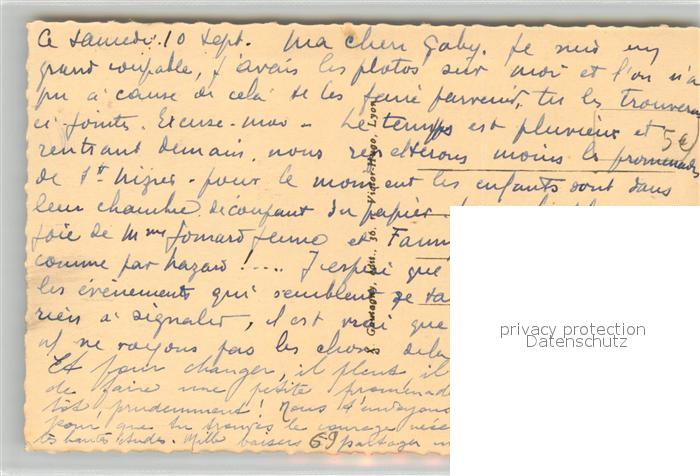 Ce samedi 10 sept. Ma chère Gaby. Je suis un
grand coupable, j'avais les photos sur moi et l'on n'a
pu à cause de celà te les faire parvenir, tu les trouveras
ci jointes. Excuse-moi - Le temps est pluvieux et
rentrant demain, nous regretterons moins les promenades
de St Nizier - pour le moment les enfants sont dans
leur chambre découpant du papier
joie de Mme Jomard jeune et
comme par hazard !.... J'espère que
les événements qui semblent se
rien à signaler, il est vrai que
ne voyons pas les choses
Et pour changer, il pleut il
de faire une petite promenade
tôt prudemment ! Nous t'envoyons
pour que tu trouves le courage
tes hautes études. Mille baisers partager
Victor-Hugo, Lyon
5€
69
privacy protection
Datenschutz